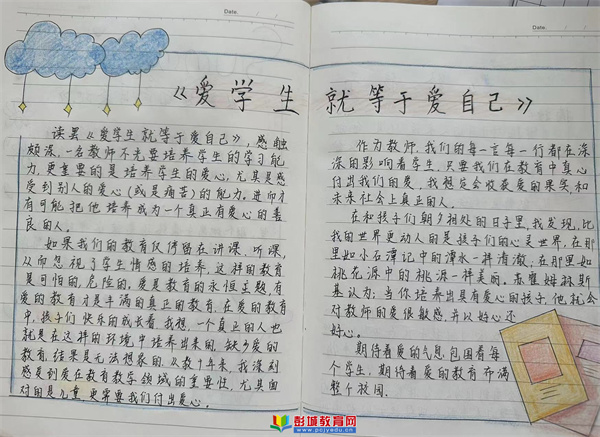 Date.
Date.
《爱学生
就等于爱自己》
读罢《爱学生就等于爱自己》,感触
颇深,一名教师不光要培养学生的学习能
力,更重要的是培养学生的爱心,尤其是感
受到别人的爱心(或是痛苦)的能力。进而才
有可能把他培养成为一个真正有爱心的善
良的人。
如果我们的教育仅停留在讲课、听课,
从而忽视了学生情感的培养,这样的教育
是可怕的,危险的。爱是教育的永恒主题,有
爱的教育才是丰满的真正的教育,在爱的教育
中,孩子们快乐的成长着。我想,一个真正的人也
就是在这样的环境中培养出来的。缺少爱的
教育,结果是无法想象的。从教十年来,我深刻
感受到爱在教育教学领域的重要性,尤其面
对的是儿童,更需要我们付出爱心。
作为教师,我们的每一言每一行都在深
深的影响着学生,只要我们在教育中真心
付出我们的爱,我想定会收获爱的果实,和
未来社会上真正的人。
在和孩子们朝夕相处的日子里,我发现,比
我的世界更动人的是孩子们的心灵世界,在那
里如小石潭记中的潭水一样清澈,在那里如
桃花源中的桃源一样美丽。苏霍姆林斯
基认为:当你培养出具有爱心的孩子,他就会
对教师的爱很敏感,并以好心还
好心。
期待着爱的气息,包围着每
个学生,期待着爱的教育布满
整个校园。
彭城教育网
www.pcjyedu.cn